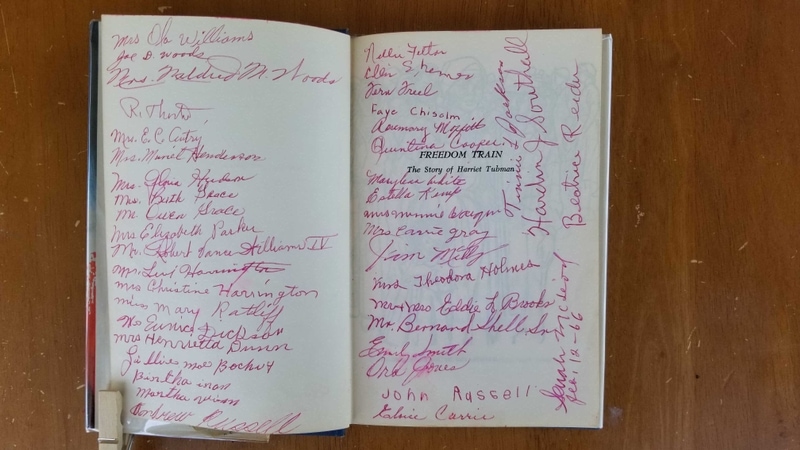 Mrs Ola Williams
Joe D. Woods
Mrs. Mildred M. Woods
R. Thornton
Mrs. E. C. Autry
Mrs. Muriel Henderson
Mrs. Gloria Hudson
Mrs. Beth Grace
Mr. Owen Grace
Mrs Elizabeth Parker
Mr. Robert Vance Williams IV
Mr. Harrington
Mrs Christine Harrington
Miss Mary Ratliff
Eunice Dickson
Mrs Henrietta Dunn
mae
Bertha
Martha
Andrew Russell
Nellie Felton
Skinner
Fern Freel
Faye Chisolm
Rosemary Moffitt
Quintina Cooper
FREEDOM TRAIN
The Story of Harriet Tubman
Marylea White
Estella Kemp
Mrs minnie
Mrs. Carrie Gray
Jim Mills
Mrs Theodora Holmes
Mr & Mrs Eddie L. Brooks
Mr. Bernand Shell, Sr.
Emily Smith
Ora Jones
John Russell
Elsie Carrie
Tinnie L. Jackson
Hardin J. Southall
Beatrice Reider
Sarah McLeod
Feb. 12-66